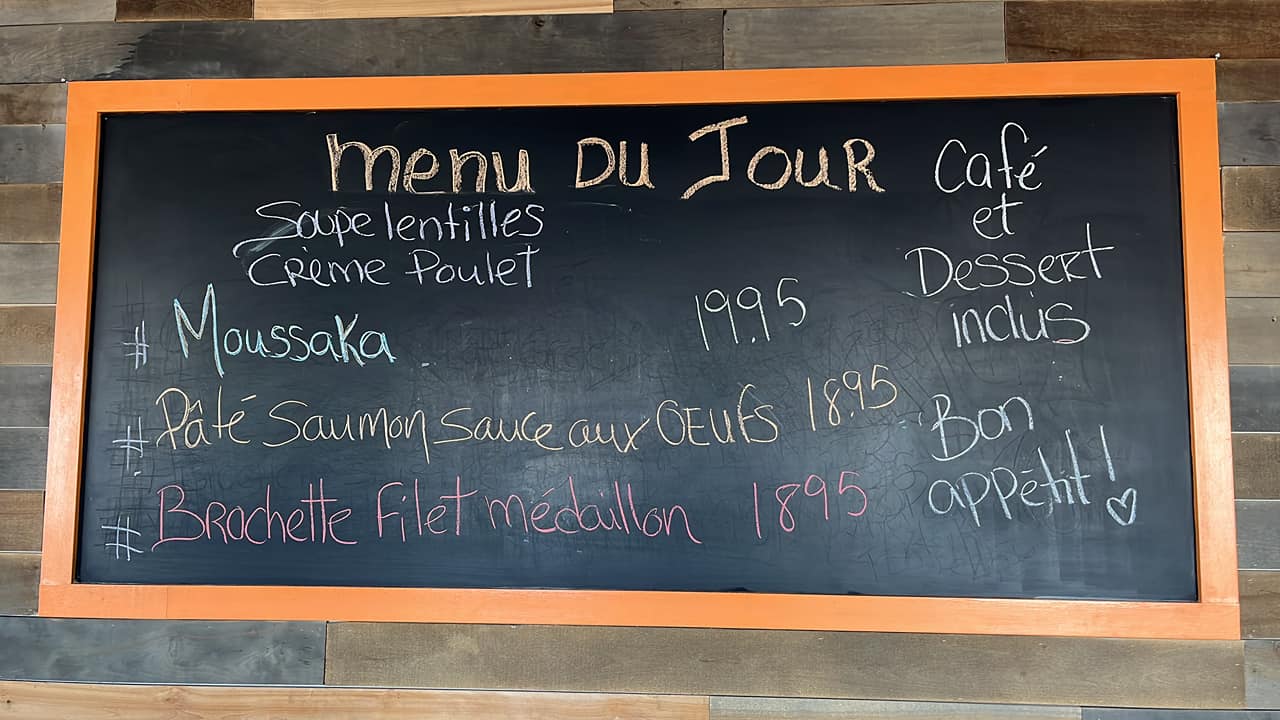 menu DU JOUR
Soupe lentilles
Crème Poulet
# Moussaka 19.95
# Pâté Saumon sauce aux OEUfs 18.95
# Brochette filet médaillon 1895
Café
et
Dessert
inclus
Bon
appétit! ♡